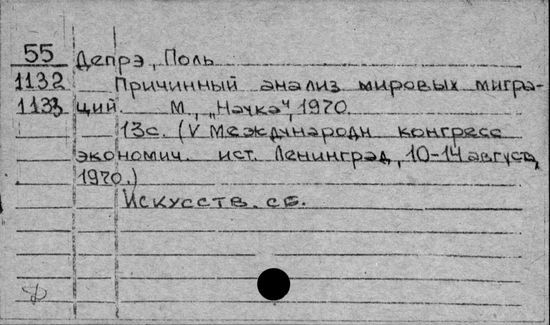 55 Депрэ, Поль
1132 Причинный анализ мировых мигра-
1133 ций. М, „Наука", 1970.
13с. (V Международн. конгресс
экономич. ист. Ленинград, 10-14 август,
1970.)
Искусств. сб.